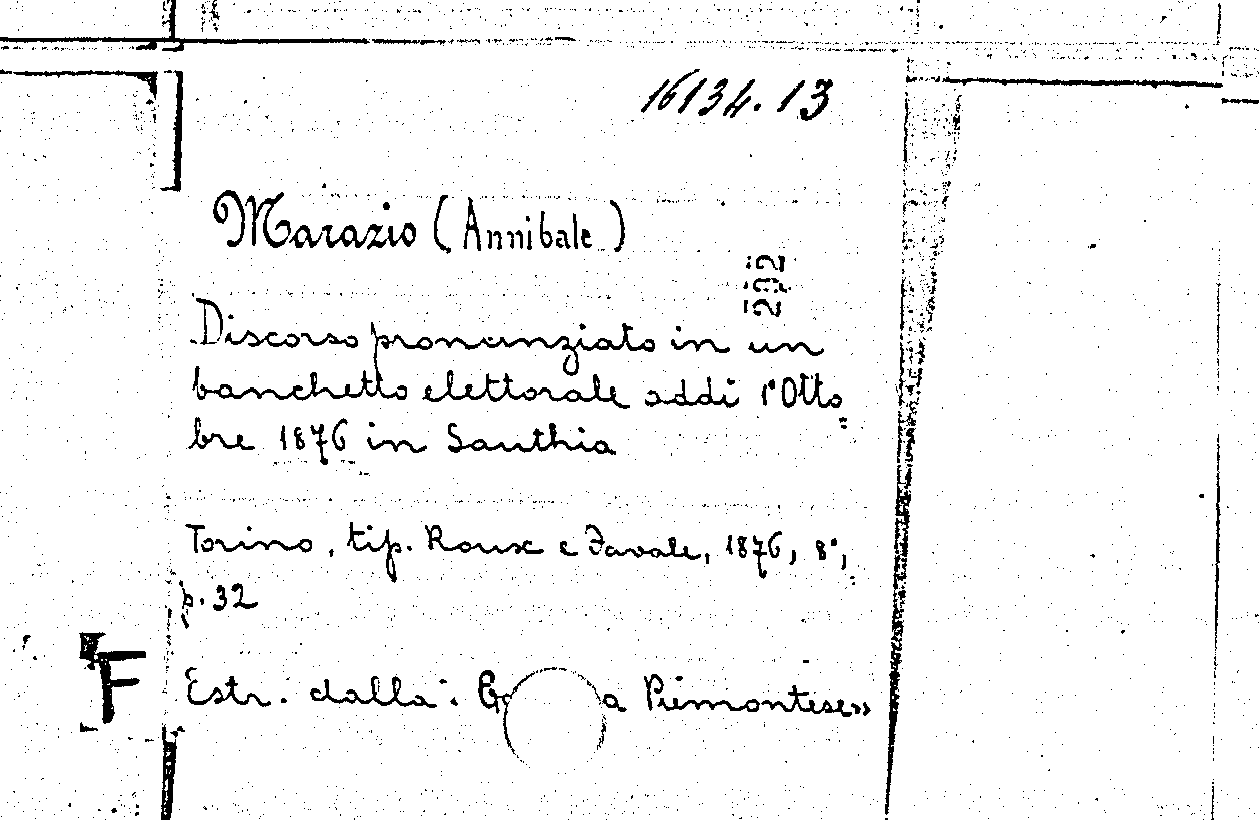 16134.13
Marazio (Annibale)
292
Discorso pronunziato in un
banchetto elettorale addì 1° Otto
=
bre 1876 in Santhia
Torino, tip. Roux e Favale, 1876, 8°,
p. 32
F
Estr. dalla: a Piemontese»